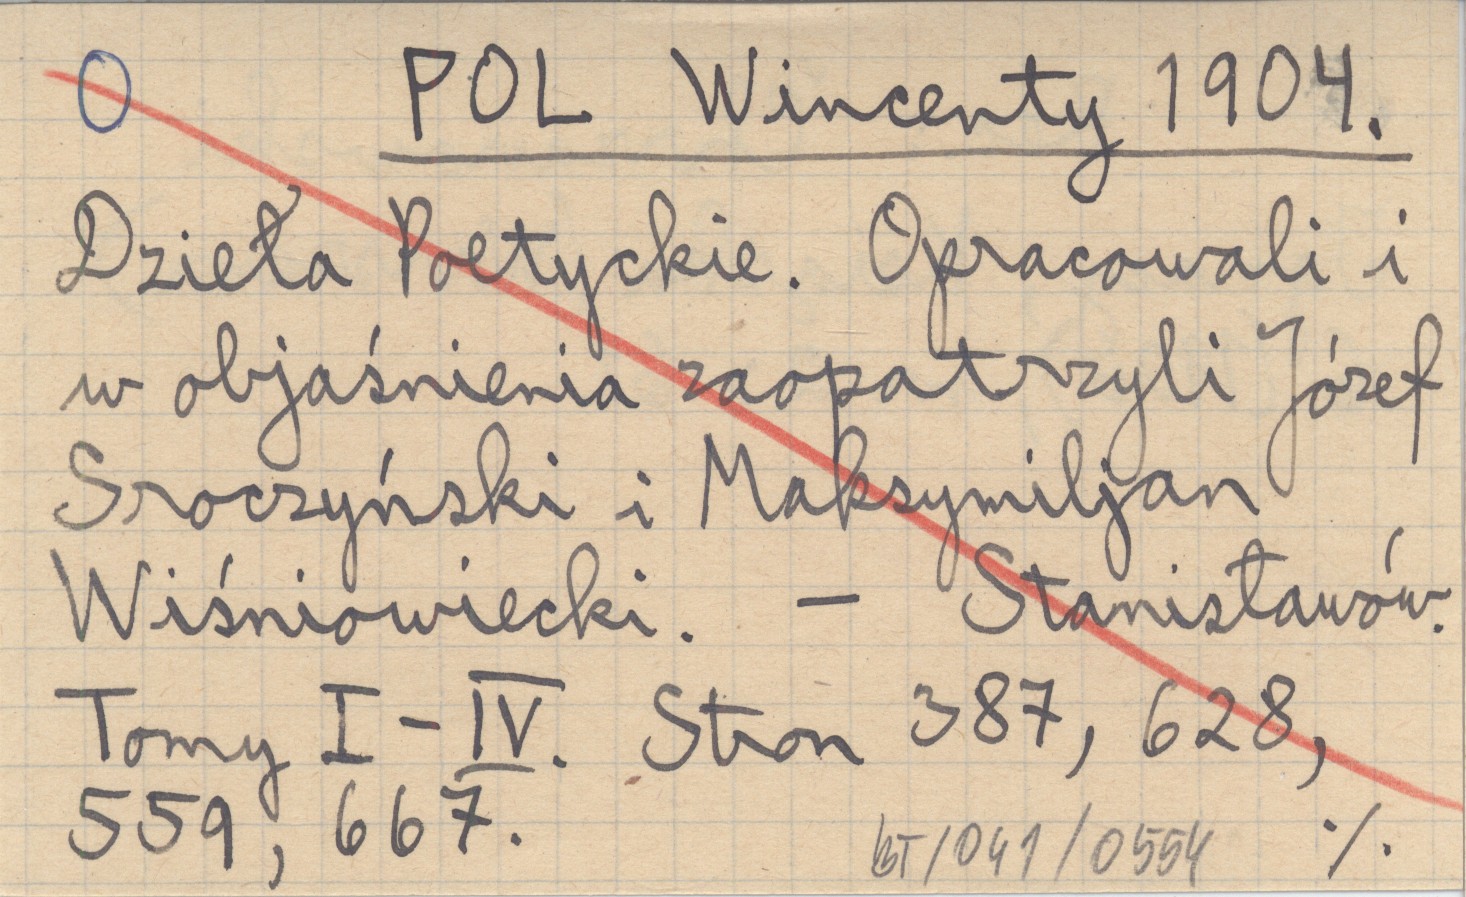 O POL Wincenty 1904.
Dzieła Poetyckie. Opracowali i
w objaśnienia zaopatrzyli Józef
Sroczyński i Maksymiljan
Wiśniowiecki. — Stanisławów.
Tomy I-IV. Stron 387, 628,
559, 667.
BT/041/0554 ·/.